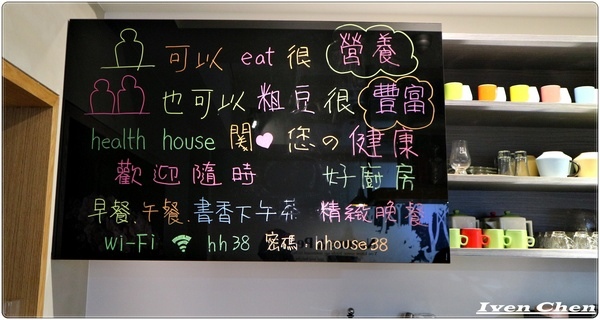 可以 eat 很 營養
也可以粗豆很 豐富
health house 関♥您の健康
歡迎隨時 好廚房
早餐.午餐.書香下午茶 精緻晚餐
Wi-Fi hh38 密碼:hhouse38
Iven Chen